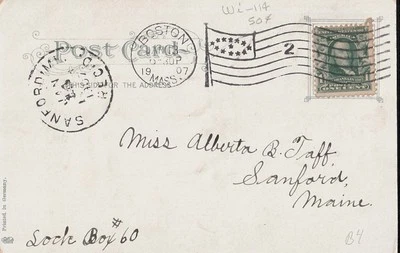 Wi-114
50¢
Post Card
BOSTON
19 07
MASS.
2
THIS SIDE FOR THE ADDRESS
SANFORD
REC'D
ONE CENT
Miss Alberta B. Taff.
Sanford,
Maine.
Lock Box #60
B4
Printed in Germany.